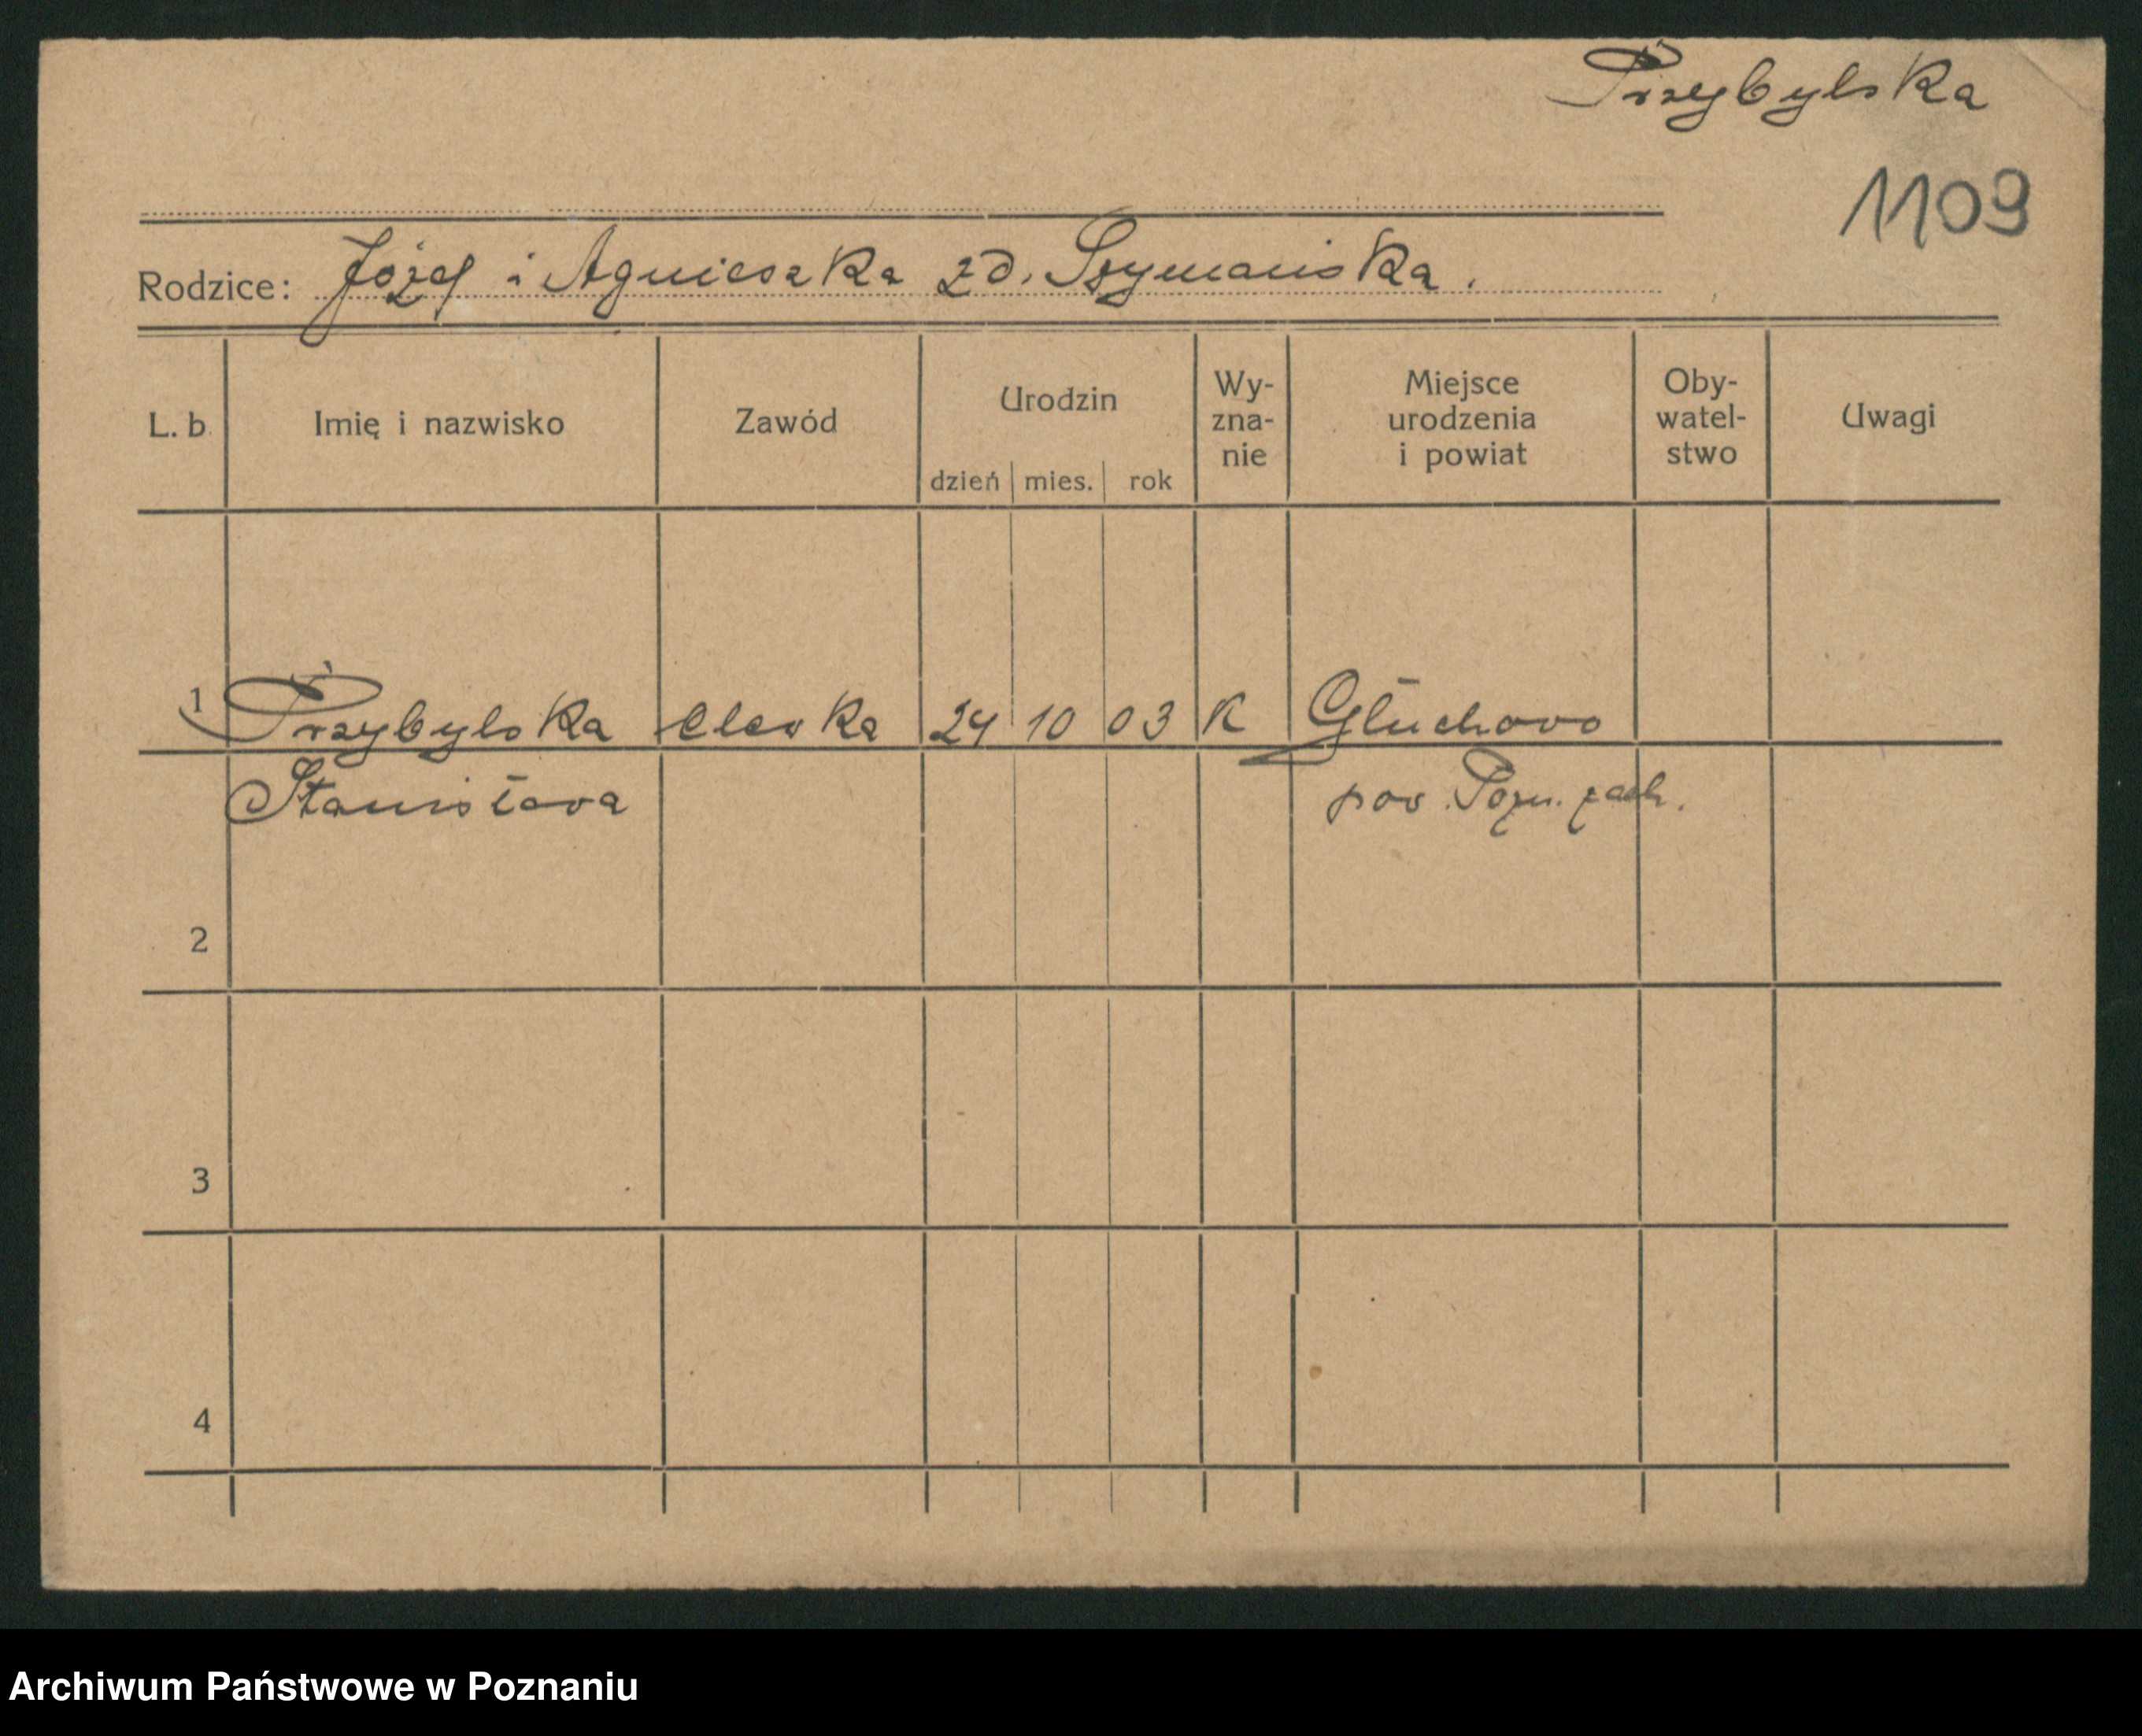 Przybylska
1109
Rodzice: Józef i Agnieszka zd. Szymańska.
L. b. Imię i nazwisko Zawód Urodzin Wy-zna-nie Miejsce urodzenia i powiat Oby-watel-stwo Uwagi
dzień mies. rok
1 Przybylska 24 10 03 K Głuchowo
Stanisława pow. Pozn. zach.
2
3
4
Archiwum Państwowe w Poznaniu